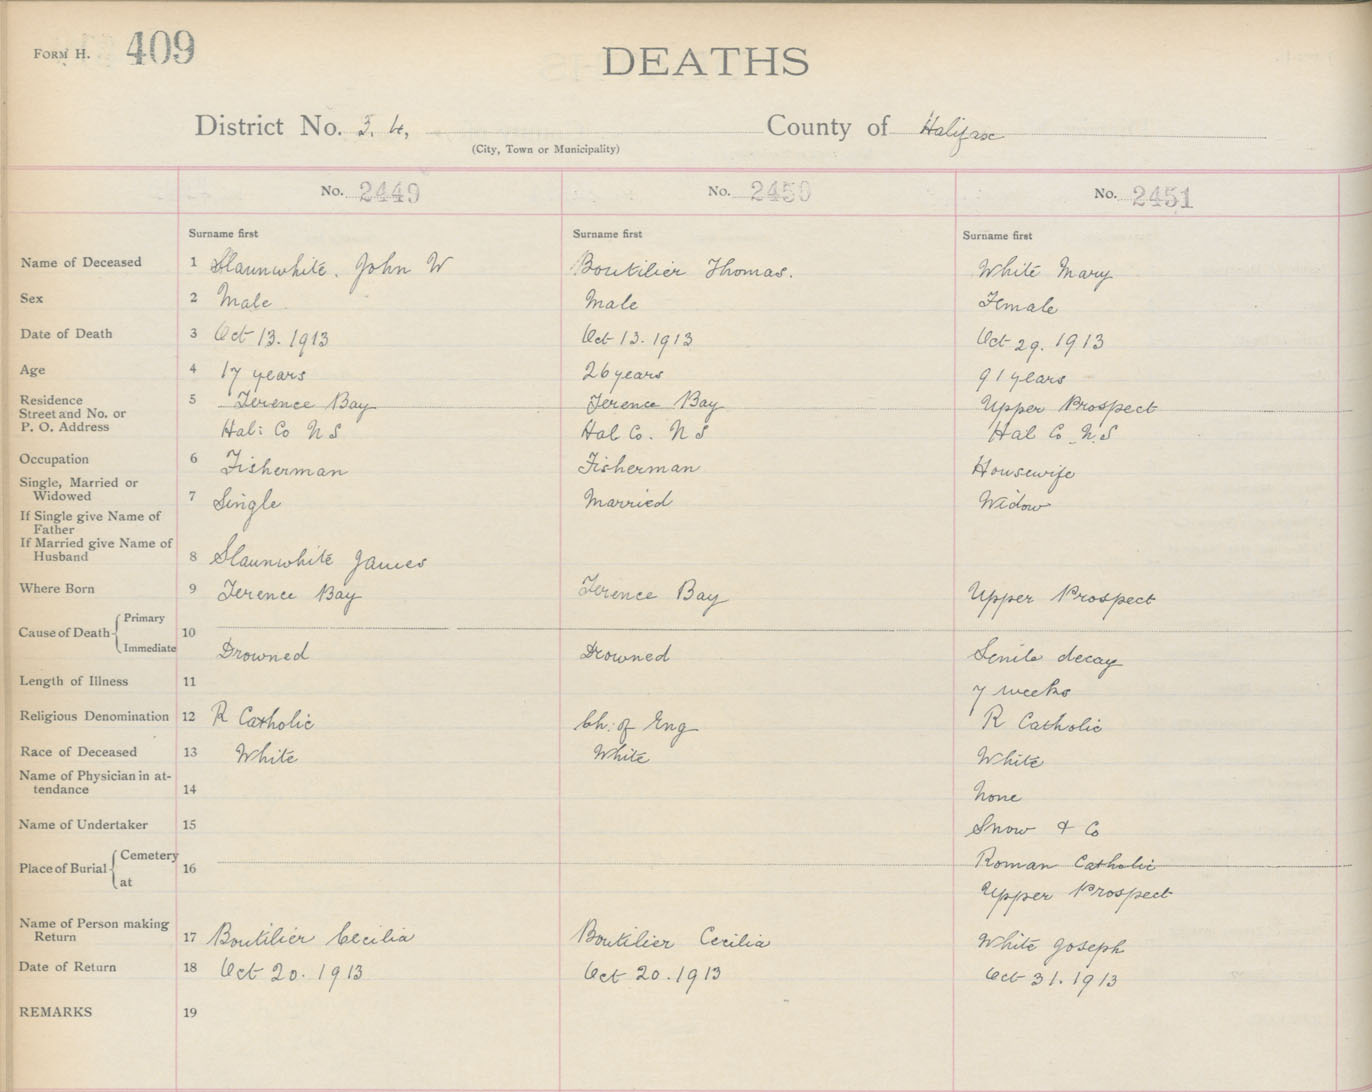 FORM H. 409
DEATHS
District No. 3. 4, County of Halifax
(City, Town or Municipality)
No. 2449 No. 2450 No. 2451
Surname first Surname first Surname first
Name of Deceased 1 Slaunwhite. John W Boutilier Thomas. White Mary
Sex 2 Male Male Female
Date of Death 3 Oct 13. 1913 Oct 13. 1913 Oct 29. 1913
Age 4 17 years 26 years 91 years
Residence 5 Terence Bay Terence Bay Upper Prospect
Street and No. or
P. O. Address Hal: Co N S Hal Co. N S Hal Co N.S
Occupation 6 Fisherman Fisherman Housewife
Single, Married or
Widowed 7 Single Married Widow
If Single give Name of
Father
If Married give Name of
Husband 8 Slaunwhite James
Where Born 9 Terence Bay Terence Bay Upper Prospect
Cause of Death Primary 10
Immediate Drowned Drowned Senile decay
Length of Illness 11 7 weeks
Religious Denomination 12 R Catholic Ch: of Eng R Catholic
Race of Deceased 13 White White White
Name of Physician in at-
tendance 14 None
Name of Undertaker 15 Snow & Co
Place of Burial Cemetery 16 Roman Catholic
at Upper Prospect
Name of Person making
Return 17 Boutilier Cecilia Boutilier Cecilia White Joseph
Date of Return 18 Oct 20. 1913 Oct 20. 1913 Oct 31. 1913
REMARKS 19